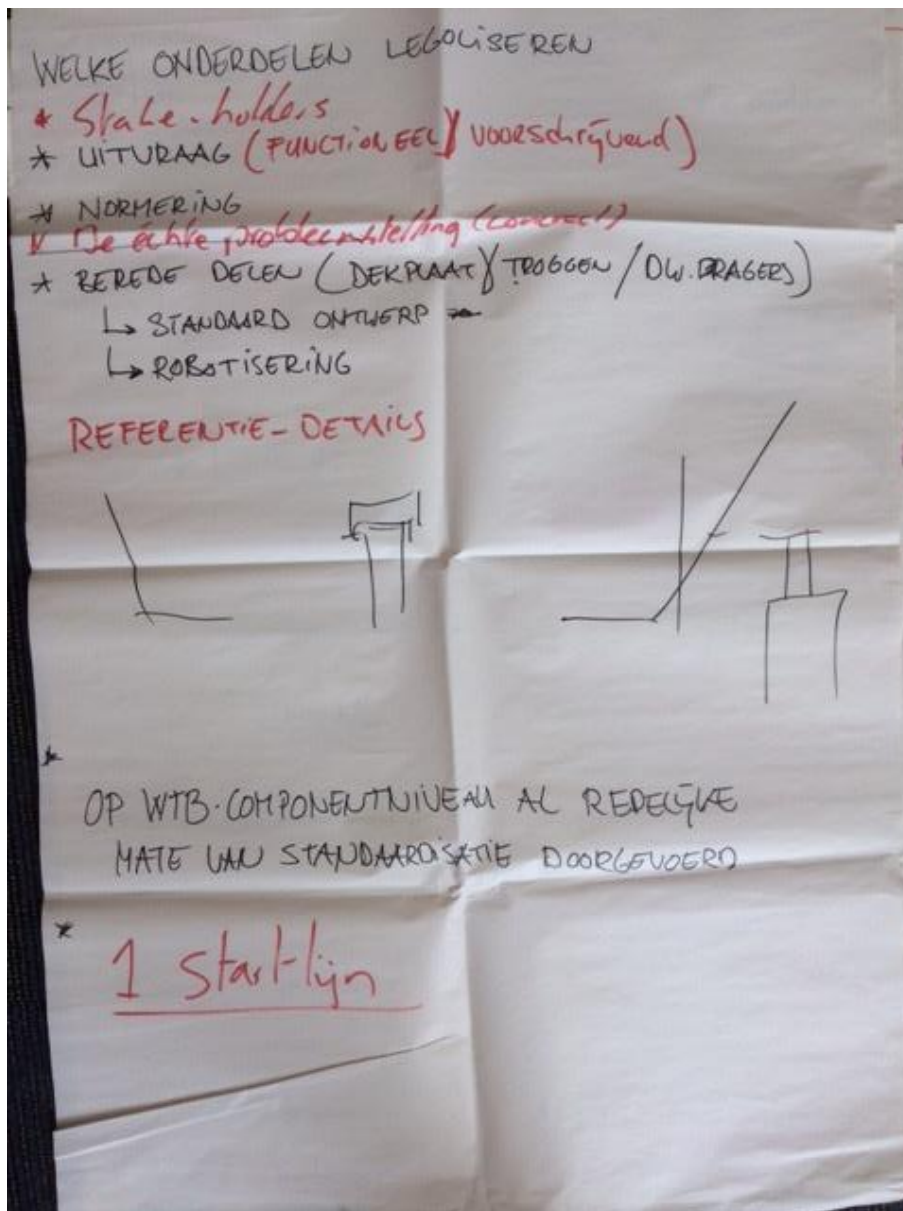 WELKE ONDERDELEN LEGOLISEREN
* Stake-holders
* UITVRAAG (FUNCTIONEEL / voorschrijvend)
* NORMERING
* De échte probleemstelling (concreet)
* BEREDE DELEN (DEKPLAAT / TROGGEN / DW.DRAGERS)
↳ STANDAARD ONTWERP
↳ ROBOTISERING
REFERENTIE-DETAILS
*
OP WTB-COMPONENTNIVEAU AL REDELIJKE
MATE VAN STANDAARDISATIE DOORGEVOERD
*
1 Startlijn